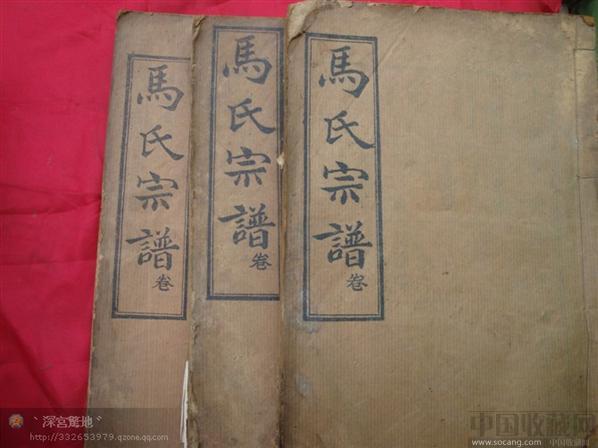 馬氏宗譜 卷
馬氏宗譜 卷
馬氏宗譜 卷
深宮驚地
http://332653979.qzone.qq.com
中国收藏网
www.socang.com 中国收藏网